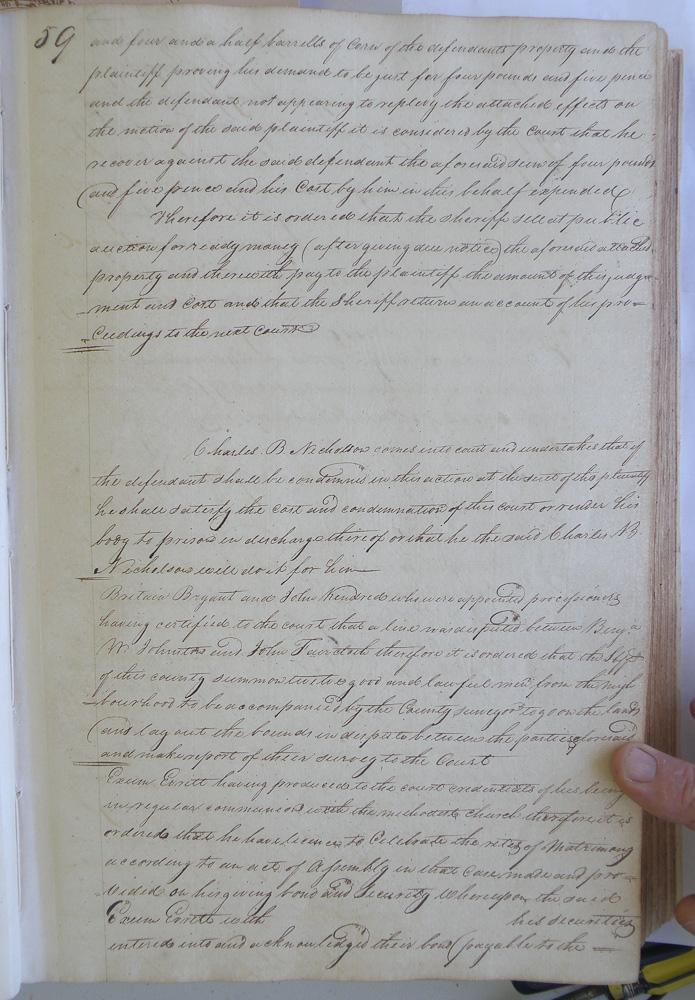 59
and four and a half barrells of Corn of the defendants property and the
plaintiff proving his demand to be just for four pounds and five pence
and the defendant not appearing to replevy the attached effects on
the motion of the said plaintiff it is considered by the Court that he
recover against the said defendant the aforesaid sum of four pounds
and five pence and his Cost by him in this behalf expended
Therefore it is ordered that the sheriff sell at public
auction for ready money (after giving due notice) the aforesaid attached
property and therewith pay to the plaintiff the amount of this judge
ment and Cost and that the Sheriff return an account of his pro=
ceedings to the next Court
Charles. B Nicholson comes into court and undertakes that if
the defendant shall be condemned in this action at the suit of the plaintiff
he shall satisfy the cost and condemnation of this court or render his
body to prison in discharge thereof or that he the said Charles B
Nicholson will do it for him
Britain Bryant and John Kendred who were appointed processioners
having certified to the court that a line was disputed between Benja
W. Johnston and John Faircloth therefore it is ordered that the Shff
of this county summon twelve good and lawful men from the neigh
bourhood to be accompanied by the County surveyor to go on the lands
and lay out the bounds in dispute between the parties aforesaid
and make report of their survey to the Court
Exum Everitt having produced to the court credentials of his being
in regular communion with the methodist church therefore it is
ordered that he have licence to Celebrate the rites of Matrimony
according to an act of Assembly in that Case made and pro=
vided on his giving bond and Security Whereupon the said
Exum Everitt with his securities
entered into and acknowledged their bond (payable to the